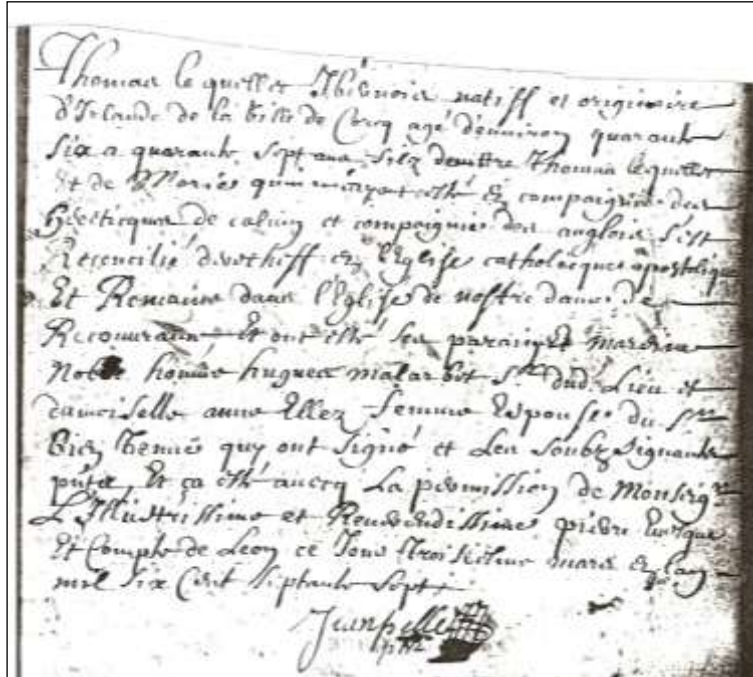 Thomas le quellec Ibernois natiff et originaire
d'Irlande de la ville de Corcq agé d'environ quarante
six a quarante sept ans filz de Thomas le quellec
Et de Marie ayant esté compaignie des
Hereticques de calvin et compaignie des anglois s'est
Reconcilié derecheff en l'Eglise catholicque apostolique
Et Romaine dans l'Eglise de nostre dame de
Recouvrance Et ont esté ses parain et maraine
Noble homme hugues malarbit Sr dud. Lieu et
damoiselle anne Ellez femme Espouse du Sr
Bien venue quy ont signé et Les soubz signants
Et ça esté avecq La permission de Monseigr
L'Illustrissime et Reverendissime pierre Evesque
Et Compte de Leon ce Jour troisiesme mars lan
mil six cent septante sept
Jean pellen
ptre